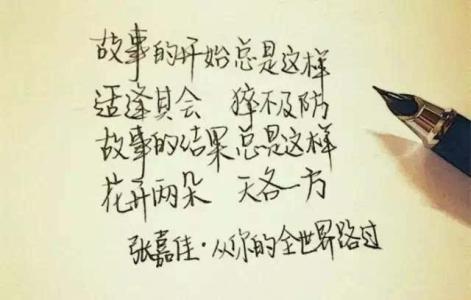 故事的开始总是这样
适逢其会 猝不及防
故事的结果总是这样
花开两朵 天各一方
张嘉佳·从你的全世界路过